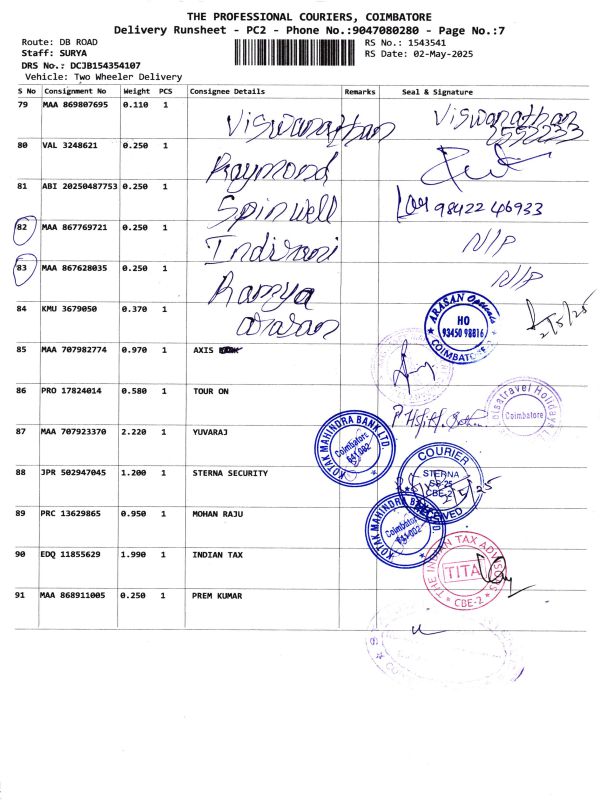 THE PROFESSIONAL COURIERS, COIMBATORE
Delivery Runsheet - PC2 - Phone No.:9047080280 - Page No.:7
Route: DB ROAD
RS No.: 1543541
Staff: SURYA
RS Date: 02-May-2025
DRS No.: DCJB154354107
Vehicle: Two Wheeler Delivery
S No Consignment No Weight PCS Consignee Details Remarks Seal & Signature
79 MAA 869807695 0.110 1 Viswanathan Viswanathan
80 VAL 3248621 0.250 1 Raymond
81 ABI 20250487753 0.250 1 Spinwell 98422 46933
82 MAA 867769721 0.250 1 Indirani N/P
83 MAA 867628035 0.250 1 Ramya N/P
84 KMU 3679050 0.370 1 Arasan
ARASAN Opticals HO 93450 98816 COIMBATORE-2
2/5/25
85 MAA 707982774 0.970 1 AXIS
86 PRO 17824014 0.580 1 TOUR ON
Coimbatore
87 MAA 707923370 2.220 1 YUVARAJ
KOTAK MAHINDRA BANK LTD Coimbatore 641-002
88 JPR 502947045 1.200 1 STERNA SECURITY
COURIER STERNA CBE-2 RECEIVED
89 PRC 13629865 0.950 1 MOHAN RAJU
KOTAK MAHINDRA BANK LTD Coimbatore 641-002
90 EDQ 11855629 1.990 1 INDIAN TAX
THE INDIAN TAX ADVISORS TITA CBE-2
91 MAA 868911005 0.250 1 PREM KUMAR